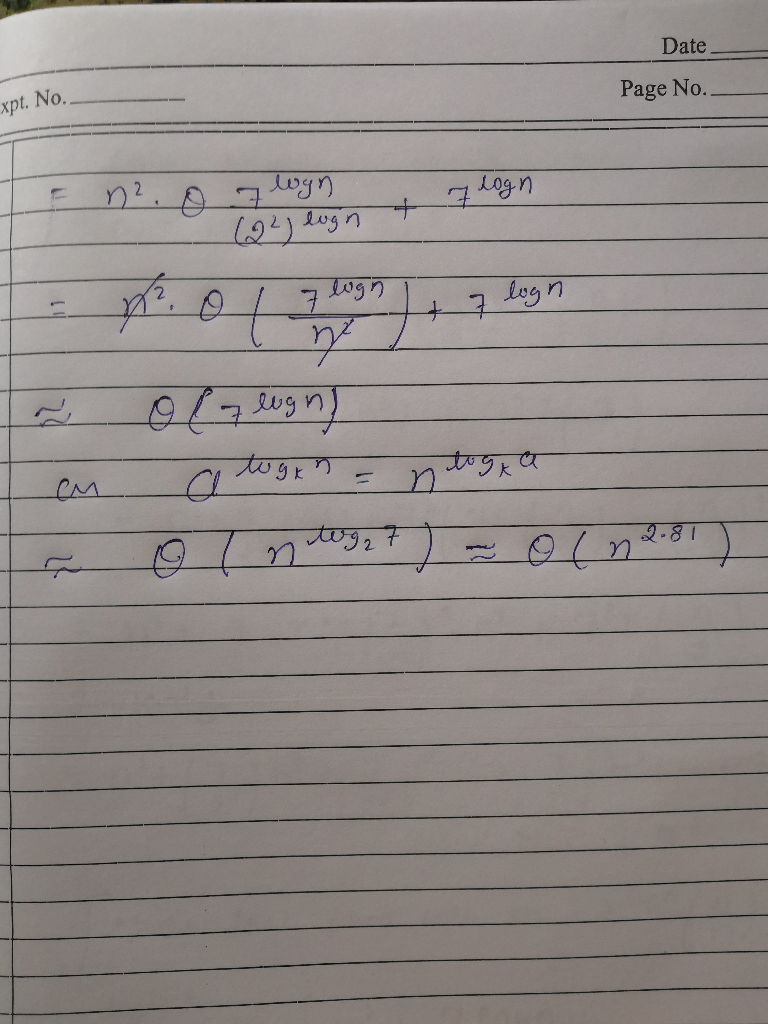 Date
xpt. No.
Page No.
= n². θ 7^logn / (2²)^logn + 7^logn
= n². θ ( 7^logn / n² ) + 7^logn
≈ θ ( 7^logn )
a^logₖn = n^logₖa
≈ θ ( n^log₂7 ) ≈ θ ( n^2.81 )